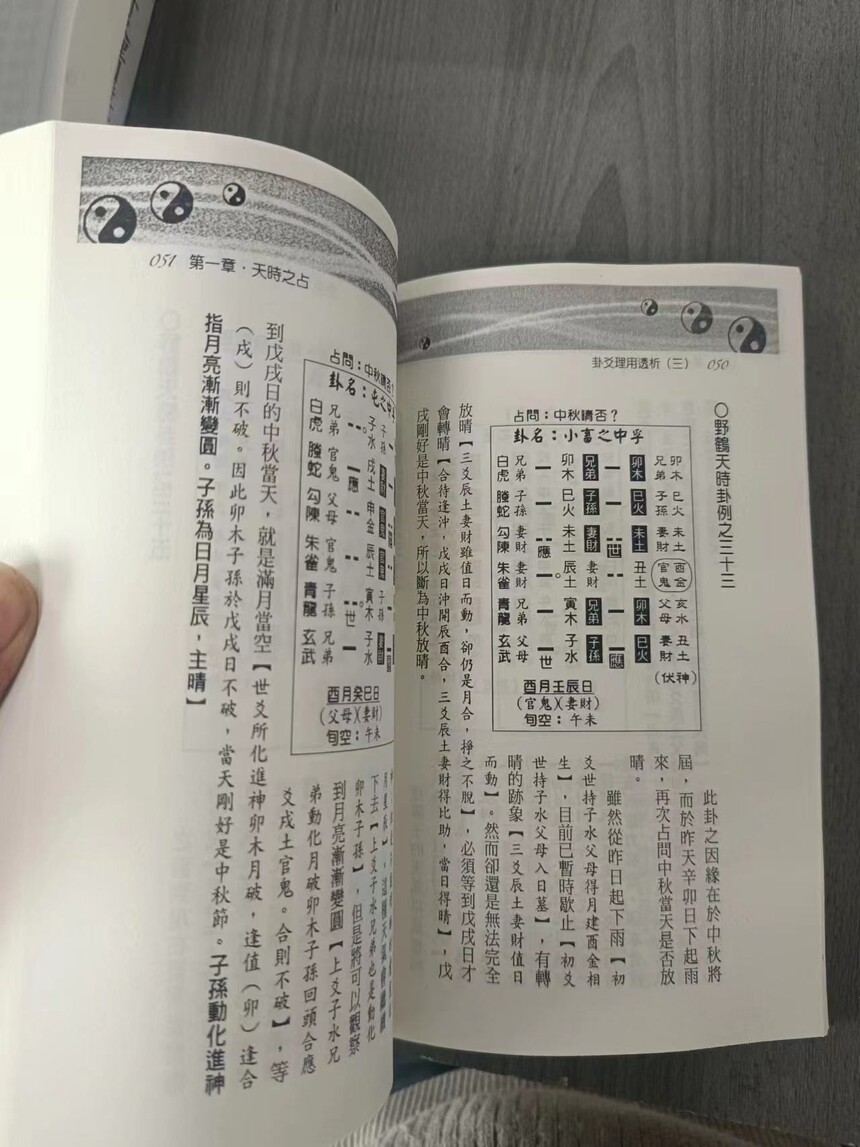 卦爻理用透析（三） 050
〇野鶴天時卦例之三十三
占問：中秋晴否？
卦名：小畜之中孚
白虎 兄弟 卯木 兄弟 卯木 兄弟 卯木
螣蛇 子孫 巳火 子孫 巳火 子孫 巳火
勾陳 妻財 應 未土 妻財 世 未土 妻財 未土
朱雀 妻財 辰土 妻財 丑土 官鬼 酉金
青龍 兄弟 寅木 兄弟 卯木 父母 亥水
玄武 父母 世 子水 子孫 應 巳火 妻財 丑土
（伏神）
酉月壬辰日
（官鬼）（妻財）
旬空：午未
此卦之因緣在於中秋將
屆，而於昨天辛卯日下起雨
來，再次占問中秋當天是否放
晴。
雖然從昨日起下雨【初
爻世持子水父母得月建酉金相
生】，目前已暫時歇止【初爻
世持子水父母入日墓】，有轉
晴的跡象【三爻辰土妻財值日
而動】。然而卻還是無法完全
放晴【三爻辰土妻財雖值日而動，卻仍是月合，掙之不脫】，必須等到戊戌日才
會轉晴【合待逢沖，戊戌日沖開辰酉合，三爻辰土妻財得比助，當日得晴】，戊
戌剛好是中秋當天，所以斷為中秋放晴。
051 第一章·天時之占
占問：中秋晴否？
卦名：屯之中孚
白虎 兄弟 子水 子孫
螣蛇 官鬼 應 戌土 妻財
勾陳 父母 申金
朱雀 官鬼 辰土
青龍 子孫 世 寅木 子孫
玄武 兄弟 子水 妻財
酉月癸巳日
（父母）（妻財）
旬空：午未
下去【上爻子水兄弟也是動化
卯木子孫】，但是將可以觀察
到月亮漸漸變圓【上爻子水兄
弟動化月破卯木子孫回頭合應
爻戌土官鬼。合則不破】，等
到戊戌日的中秋當天，就是滿月當空【世爻所化進神卯木月破，逢值（卯）逢合
（戌）則不破。因此卯木子孫於戊戌日不破，當天剛好是中秋節。子孫動化進神
指月亮漸漸變圓。子孫為日月星辰，主晴】